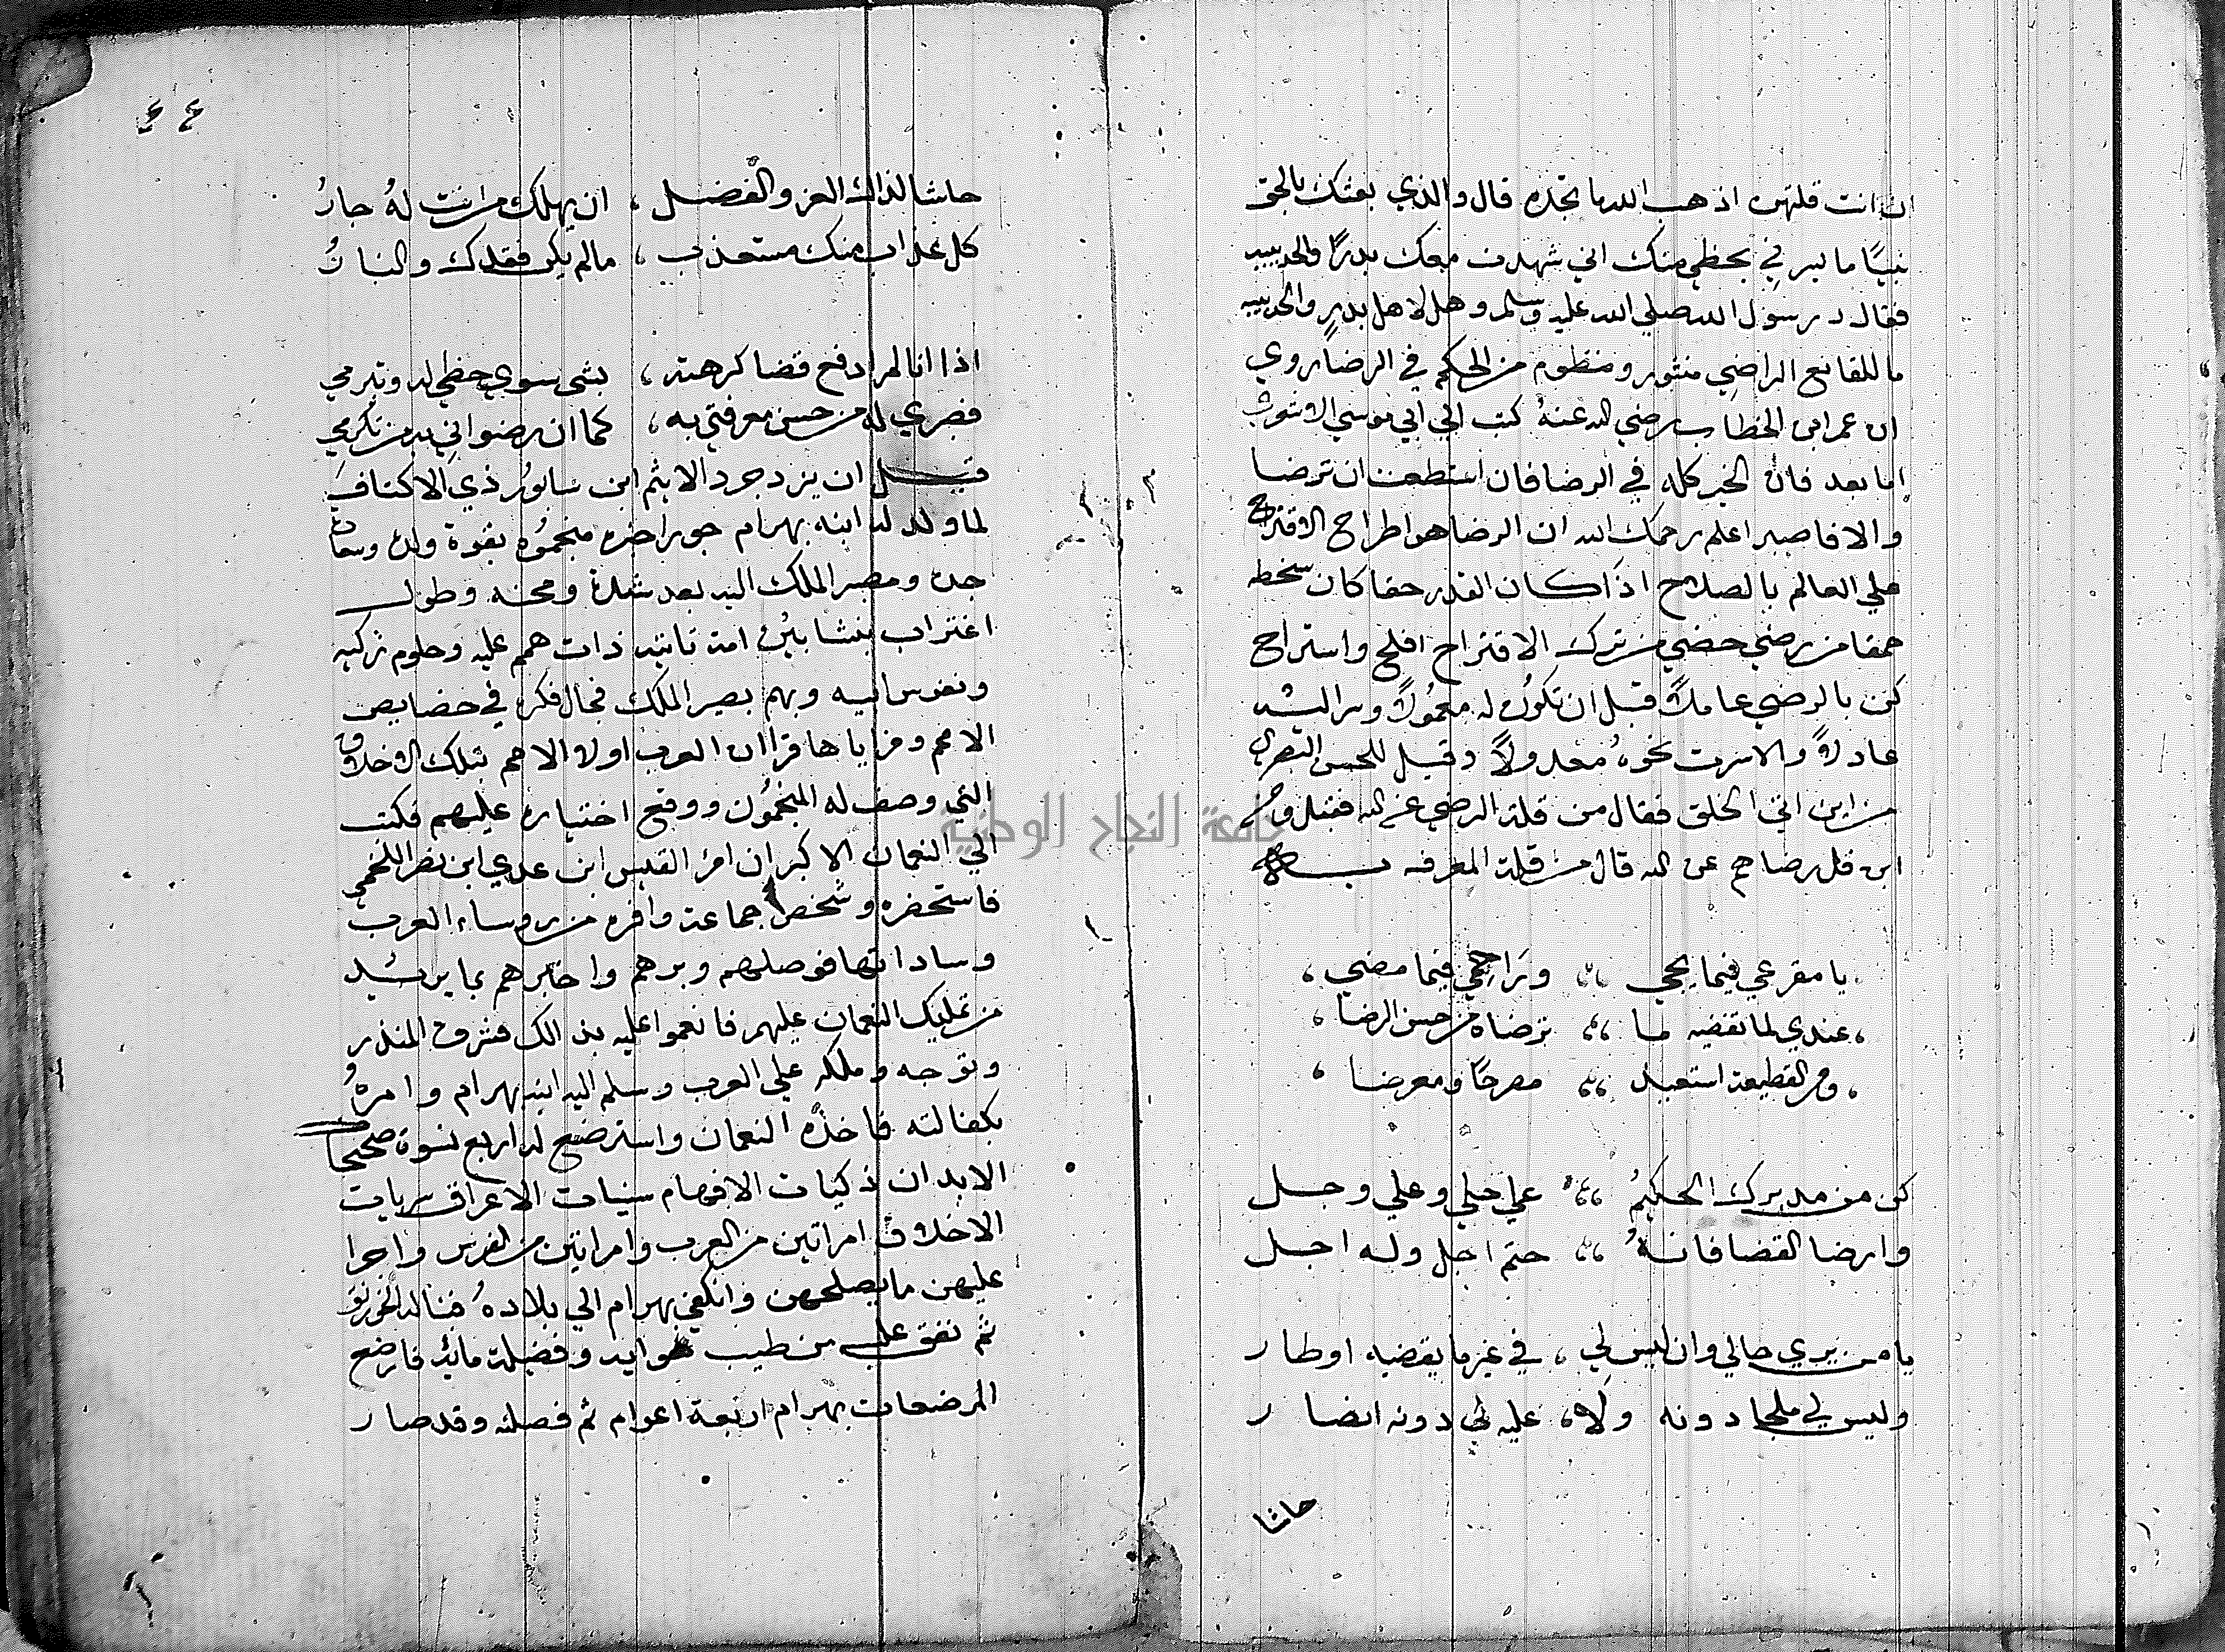 ان انت قلتهن اذهب الله ما تجده قال والذي بعثك بالحق
نبيًا ما يسرني بحظي منك اني شهدت معك بدرًا والحديبيه
فقال رسول الله صلي الله عليه وسلم وهل لاهل بدرٍ والحديبيه
ما للقانع الراضي منثور ومنظوم من الحكم في الرضا روي
ان عمر ابن الخطاب رضي الله عنهُ كتب الي ابي موسي الاشعري
اما بعد فان الخير كله في الرضا فان استطعت ان ترضا
والا فاصبر اعلم رحمك الله ان الرضا هو اطراح الاقتراح
علي العالم بالصلاح اذا كان القدر حقا كان سخطه
حمقا من رضي حضي من ترك الاقتراح افلح واستراح
كن بالرضي عاملاً قبل ان تكون له معمُولاً وسر اليه
عادلاً والا سرت نحوهُ معدولاً وقيل للحسن البصري
من اين اتي الخلق فقال من قلة الرضي عن الله فقيل ومن
اين قل رضاهم عن الله قال من قلة المعرفه به
يا مفزعي فيما يجي وراحمي فيما مضي
عندي لما تقضيه ما ترضاه من حسن الرضا
ومن القطيعة استعيد مصرحًا ومعرضا
كن من مدبرك الحكيمُ علي جلي وعلي وجل
وارضا القضا فانهُ حتم اجل وله اجل
يا من يري حالي وان ليس لي في غير ما يقضيه اوطار
وليس لي ملجا دونه ولا عليه لي دونه انصار
حاشا
٤٤
حاشا لذاك العز والفضل ان يهلك من انت لهُ جارُ
كل عذاب منك مستعذب ما لم يكن فقدك والنارُ
اذا انا لم ادفع قضا كرهته بشي سوي حظي له وتبرمي
فصبري له من حسن معرفتي به كما ان رضواني به من تكرمي
قيل ان يزدجرد الاثيم ابن سابور ذي الاكتاف
لما ولد له ابنه بهرام جور اخبره منجموه بقوة ولده وسعادة
جده ومصير الملك اليه بعد شدة ومحنه وطول
اغتراب ينشا بين امة نائيه ذات همم عليه وحلوم زكيه
ونفوس ابيه وبهم يصير الملك فجال فكره في خصايص
الامم ومزاياها فراا ان العرب اولا الامم بتلك الاخلاق
التي وصف له المنجمُون ووقع اختياره عليهم فكتب
الي النعمان الاكبر ان امرُ القيس ابن عدي ابن نصر اللخمي
فاستحضره وشخص جماعة وافره من روساء العرب
وساداتها فوصلهم وبرهم واخبرهم بما يريد
من تمليك النعمان عليهم فانعموا عليه بذالك فشرف المنذر
وتوجه وملكه علي العرب وسلم اليه ابنه بهرام وامره
بكفالته فاخذه النعمان واسترضع له اربع نسوة صحيحات
الابدان ذكيات الافهام سنيات الاعراق سريات
الاخلاق امراتين من العرب وامراتين من الفرس واجرا
عليهن ما يصلحهن وانكفي بهرام الي بلادهُ فبنا له الخورنق
ثم نفق عليه من طيب هوايه وفضيلة مائه فارضع
المرضعات بهرام اربعة اعوام ثم فصلنه وقد صار
جامعة النجاح الوطنية